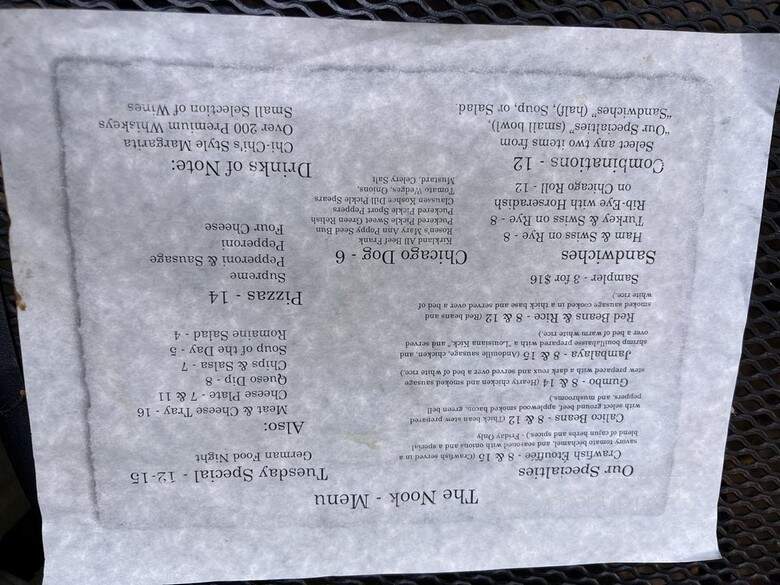 The Nook - Menu
Our Specialties
Crawfish Étouffée - 8 & 15 (Crawfish served in a
savory tomato béchamel, and seasoned with onions and a special
blend of cajun herbs and spices.) - Friday Only
Calico Beans - 8 & 12 (Thick bean stew prepared
with select ground beef, applewood smoked bacon, green bell
peppers, and mushrooms.)
Gumbo - 8 & 14 (Hearty chicken and smoked sausage
stew prepared with a dark roux and served over a bed of white rice.)
Jambalaya - 8 & 15 (Andouille sausage, chicken, and
shrimp bouillabaisse prepared with a "Louisiana Kick," and served
over a bed of warm white rice.)
Red Beans & Rice - 8 & 12 (Red beans and
smoked sausage cooked in a thick base and served over a bed of
white rice.)
Sampler - 3 for $16
Sandwiches
Ham & Swiss on Rye - 8
Turkey & Swiss on Rye - 8
Rib-Eye with Horseradish
on Chicago Roll - 12
Combinations - 12
Select any two items from
"Our Specialties" (small bowl),
"Sandwiches" (half), Soup, or Salad.
Tuesday Special - 12-15
German Food Night
Also:
Meat & Cheese Tray - 16
Cheese Plate - 7 & 11
Queso Dip - 8
Chips & Salsa - 7
Soup of the Day - 5
Romaine Salad - 4
Pizzas - 14
Supreme
Pepperoni & Sausage
Pepperoni
Four Cheese
Chicago Dog - 6
Kirkland All Beef All Frank
Rosen's Mary Ann Poppy Seed Bun
Puckered Pickle Sweet Green Relish
Puckered Pickle Sport Peppers
Claussen Kosher Dill Pickle Spears
Tomato Wedges, Onions,
Mustard, Celery Salt
Drinks of Note:
Chi-Chi's Style Margarita
Over 200 Premium Whiskeys
Small Selection of Wines